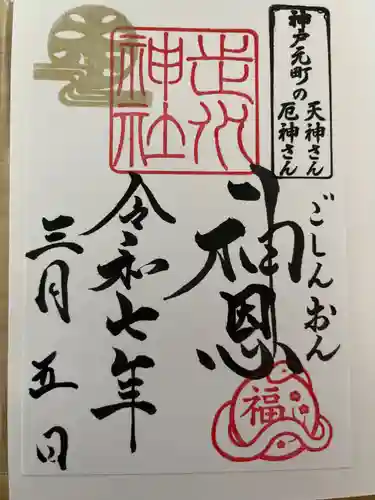 神戸元町の
天神さん
厄神さん
走水
神社
神恩
ごしんおん
令和七年
三月五日
福